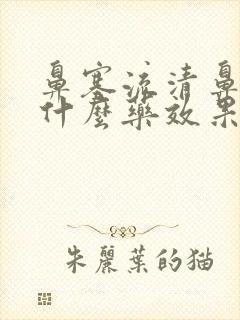 鼻塞流清鼻
什麼藥效果
朱麗葉的猫